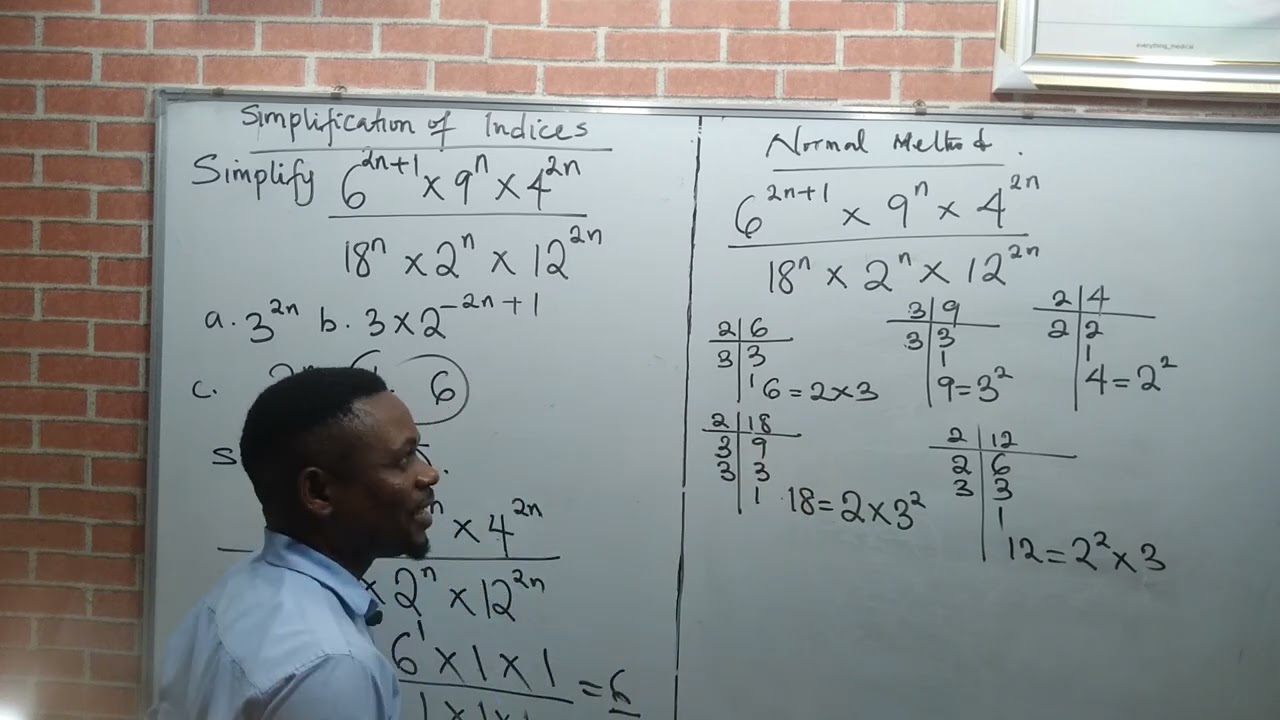 everything_medical
Simplification of Indices
Simplify 6^{2n+1} × 9^n × 4^{2n}
18^n × 2^n × 12^{2n}
a. 3^{2n} b. 3 × 2^{-2n+1}
c. 6
× 4^{2n}
× 2^n × 12^{2n}
6^1 × 1 × 1
= 6
Normal Method.
6^{2n+1} × 9^n × 4^{2n}
18^n × 2^n × 12^{2n}
2|6
3|3
|1
6 = 2 × 3
3|9
3|3
|1
9 = 3^2
2|4
2|2
|1
4 = 2^2
2|18
3|9
3|3
|1
18 = 2 × 3^2
2|12
2|6
3|3
|1
12 = 2^2 × 3